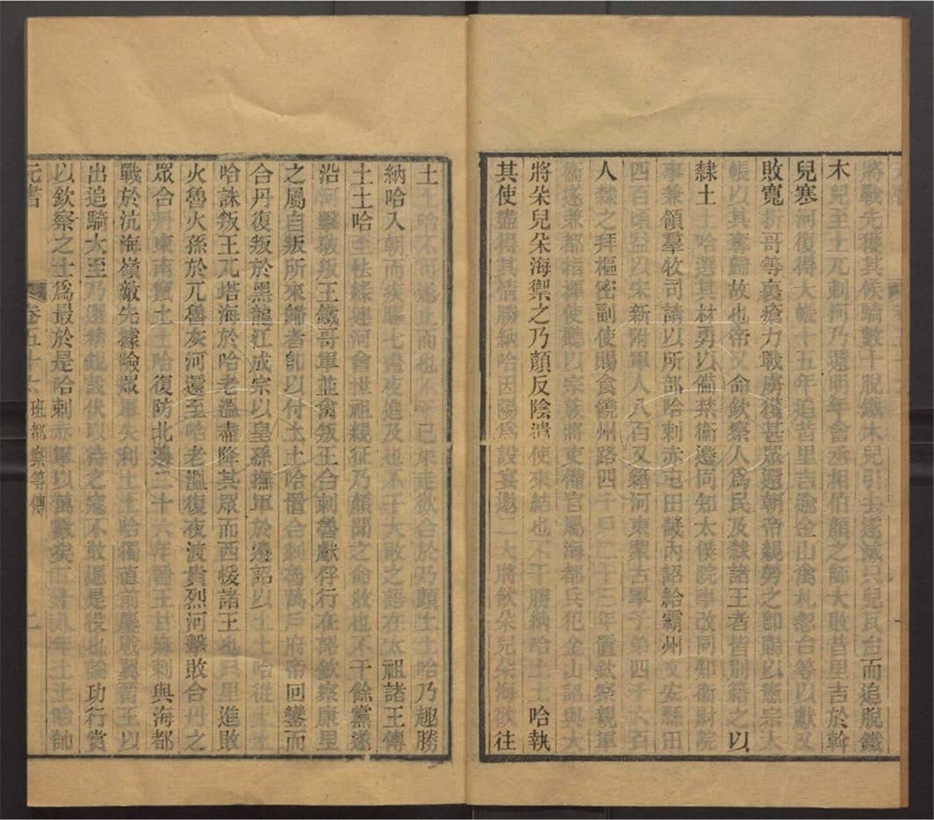 將戰先獲其候騎數十脫鐵木兒引去遂滅只兒瓦台而追脫鐵
木兒至土兀剌河乃還明年會丞相伯顏之師大敗昔里吉於斡
兒塞河復得大帳十五年追昔里吉逾金山禽札都台等以獻又
敗寬折哥等裏瘡力戰虜獲甚眾還朝帝親勞之卽賜以憲宗大
帳以其奪歸故也帝又命欽察人爲民及隸諸王者皆別籍之以
隸土土哈選其材勇以備禁衞遷同知太僕院事改同知衞尉院
事兼領羣牧司請以所部哈剌赤屯田畿內詔給霸州文安縣田
四百頃益以宋新附軍人八百又籍河東蒙古軍子弟四千六百
人隸之拜樞密副使賜食饒州路四百二十三年置欽察親軍
衞遂兼都指揮使聽以宗族將吏備官屬海都兵犯金山詔與大
將朵兒朵海禦之乃顏反陰遣使來結也不干勝納哈土土哈執
其使盡得其情勝納哈因陽爲設宴邀二大將飲朵兒朵海欲往
土土哈不可遂止而也不干已東走欲合於乃顏土土哈乃趣勝
納哈入朝而疾驅七晝夜追及也不干大敗之語在太祖諸王傳
土土哈至怯綠連河會世祖親征乃顏聞之命收也不干餘黨遂
沿河擊敗叛王鐵哥軍並禽叛王合剌魯獻俘行在詔欽察康里
之屬自叛所來歸者卽以付土土哈置合剌魯萬戶府帝回鑾而
合丹復叛於黑龍江成宗以皇孫撫軍於邊詔以土土哈從土土
哈誅叛王兀塔海於哈老溫盡降其眾而西援諸王也只里進敗
火魯火孫於兀魯灰河還至哈老溫復夜渡貴烈河擊敗合丹之
眾合丹東南竄土土哈復防北邊二十六年晉王甘麻剌與海都
戰於沆海嶺敵先據險眾軍失利土土哈獨直前鏖戰翼晉王以
出追騎大至乃選精銳設伏以待之寇不敢逼是役也論功行賞
以欽察之士爲最於是哈剌赤軍以萬數矣二十八年土土哈帥
元書 卷五十六 班都察等傳 二